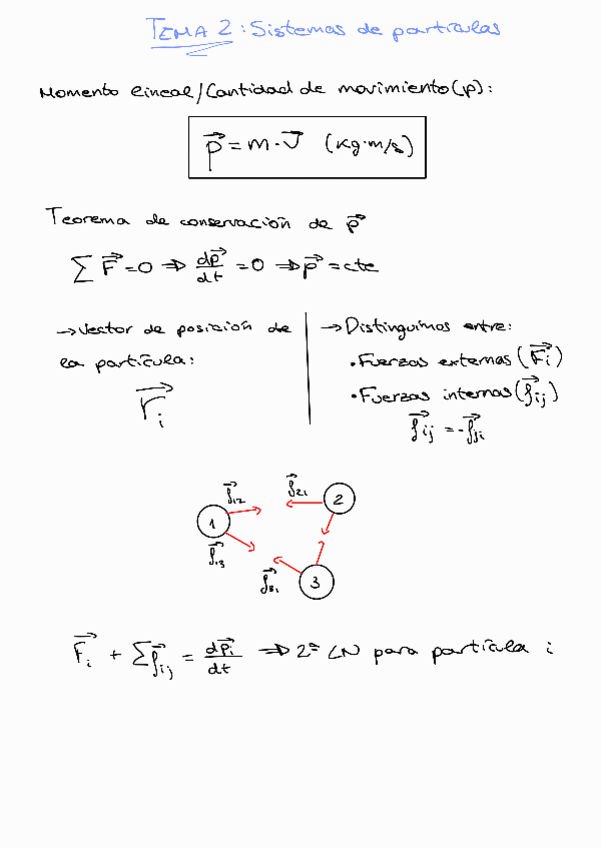 TEMA 2: Sistemas de partículas
Momento lineal/Cantidad de movimiento (p):
p⃗ = m · v⃗ (kg·m/s)
Teorema de conservación de p⃗
∑ F⃗ = 0 ⇒ dp⃗/dt = 0 ⇒ p⃗ = cte
→ Vector de posición de
la partícula:
r⃗ᵢ
→ Distinguimos entre:
• Fuerzas externas (F⃗ᵢ)
• Fuerzas internas (f⃗ᵢⱼ)
f⃗ᵢⱼ = -f⃗ⱼᵢ
f⃗₁₂
f⃗₂₁
1
2
f⃗₁₃
f⃗₃₁
3
F⃗ᵢ + ∑f⃗ᵢⱼ = dp⃗ᵢ/dt ⇒ 2ª LN para partícula i